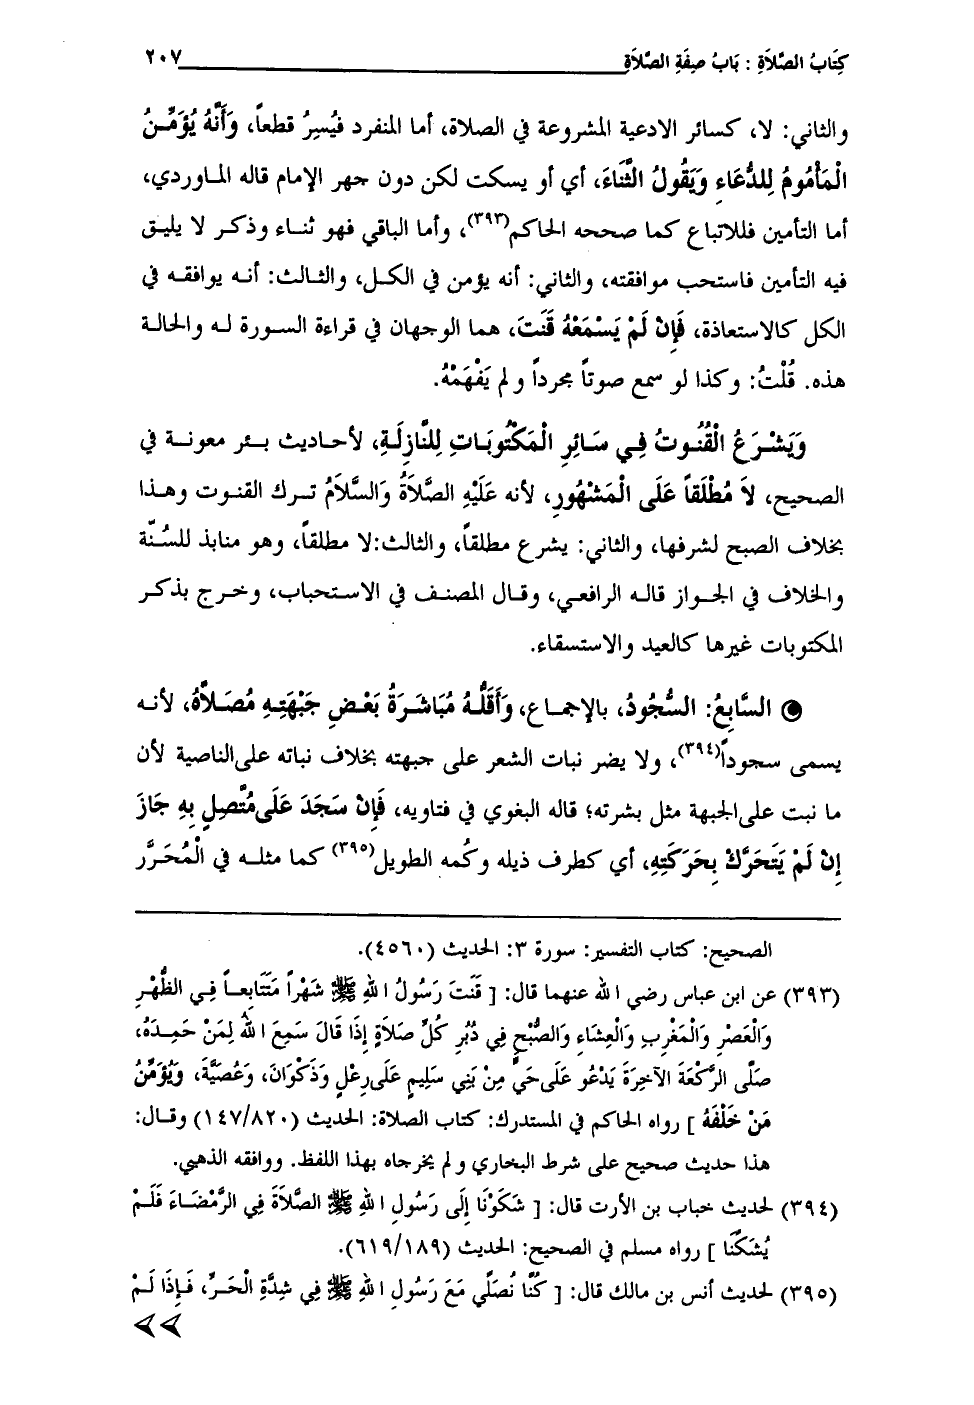 كِتَابُ الصَّلَاةِ : بَابُ صِفَةِ الصَّلَاةِ ٢٠٧
والثاني: لا، كسائر الادعية المشروعة في الصلاة، أما المنفرد فيُسِرُ قطعاً، وَأَنَّهُ يُؤَمِّنُ
الْمَأْمُومُ لِلدُّعَاءِ وَيَقُولُ الثَّنَاءَ، أي أو يسكت لكن دون جهر الإمام قاله الماوردي،
أما التأمين فللاتباع كما صححه الحاكم(٣٩٣)، وأما الباقي فهو ثناء وذكر لا يليق
فيه التأمين فاستحب موافقته، والثاني: أنه يؤمن في الكل، والثالث: أنه يوافقه في
الكل كالاستعاذة، فَإِنْ لَمْ يَسْمَعْهُ قَنَتَ، هما الوجهان في قراءة السورة له والحالة
هذه. قُلْتُ: وكذا لو سمع صوتاً مجرداً و لم يَفْهَمْهُ.
وَيَشْرَعُ الْقُنُوتُ فِي سَائِرِ الْمَكْتُوبَاتِ لِلنَّازِلَةِ، لأحاديث بئر معونة في
الصحيح، لاَ مُطْلَقاً عَلَى الْمَشْهُورِ، لأنه عَلَيْهِ الصَّلاَةُ وَالسَّلاَمُ ترك القنوت وهذا
بخلاف الصبح لشرفها، والثاني: يشرع مطلقاً، والثالث:لا مطلقاً، وهو منابذ للسُنّة
والخلاف في الجواز قاله الرافعي، وقال المصنف في الاستحباب، وخرج بذكر
المكتوبات غيرها كالعيد والاستسقاء.
السَّابِعُ: السُّجُودُ، بالإجماع، وَأَقَلُّهُ مُبَاشَرَةُ بَعْضِ جَبْهَتِهِ مُصَلاَّهُ، لأنه
يسمى سجوداً(٣٩٤)، ولا يضر نبات الشعر على جبهته بخلاف نباته على الناصية لأن
ما نبت على الجبهة مثل بشرته؛ قاله البغوي في فتاويه، فَإِنْ سَجَدَ عَلَى مُتَّصِلٍ بِهِ جَازَ
إِنْ لَمْ يَتَحَرَّكْ بِحَرَكَتِهِ، أي كطرف ذيله وكُمه الطويل(٣٩٥) كما مثله في الْمُحَرَّر
الصحيح: كتاب التفسير: سورة ٣: الحديث (٤٥٦٠).
(٣٩٣) عن ابن عباس رضي الله عنهما قال: [ قَنَتَ رَسُولُ اللهِ ﷺ شَهْراً مَتَتَابِعاً فِي الظُّهْرِ
وَالْعَصْرِ وَالْمَغْرِبِ وَالْعِشَاءِ وَالصُّبْحِ فِي دُبُرِ كُلِّ صَلاَةٍ إِذَا قَالَ سَمِعَ اللهُ لِمَنْ حَمِدَهُ،
صَلَّى الرَّكْعَةَ الآخِرَةَ يَدْعُو عَلَى حَيٍّ مِنْ بَنِي سَلِيمٍ عَلَى رِعْلٍ وَذَكْوَانَ، وَعُصَيَّةَ، وَيُؤَمِّنُ
مَنْ خَلْفَهُ ] رواه الحاكم في المستدرك: كتاب الصلاة: الحديث (١٤٧/٨٢٠) وقال:
هذا حديث صحيح على شرط البخاري و لم يخرجاه بهذا اللفظ. ووافقه الذهبي.
(٣٩٤) لحديث خباب بن الأرت قال: [ شَكَوْنَا إِلَى رَسُولِ اللهِ ﷺ الصَّلاَةَ فِي الرَّمْضَاءَ فَلَمْ
يُشكَنَا ] رواه مسلم في الصحيح: الحديث (٦١٩/١٨٩).
(٣٩٥) لحديث أنس بن مالك قال: [ كُنَّا نُصَلِّي مَعَ رَسُولِ اللهِ ﷺ فِي شِدَّةِ الْحَرِّ، فَإِذَا لَمْ